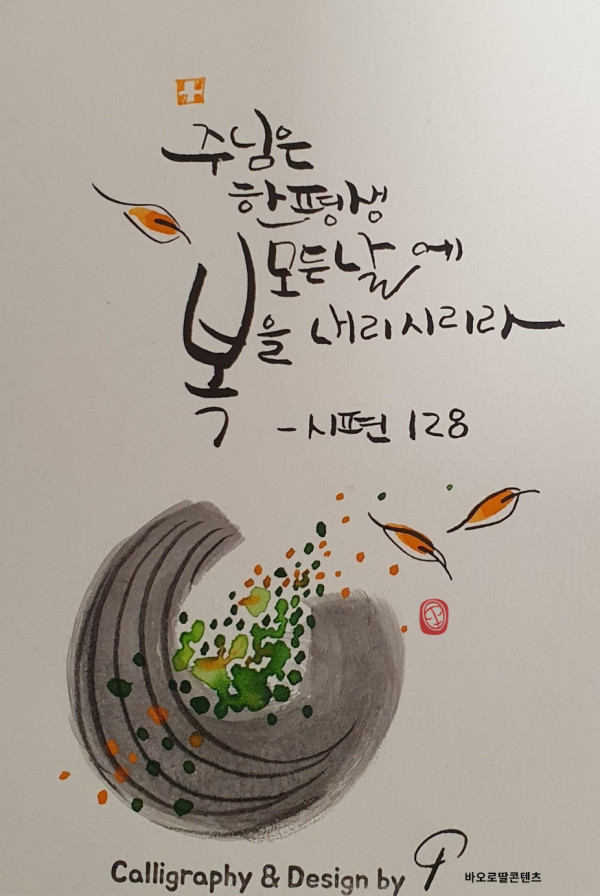 주님은
한평생
모든날에
복을 내리시리라
-시편 128
Calligraphy & Design by
바오로딸콘텐츠